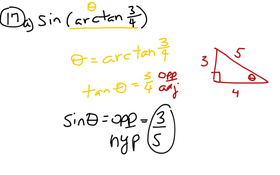 θ
17 a) sin (arctan 3/4)
θ = arctan 3/4
tan θ = 3/4 opp adj
sin θ = opp = 3
hyp 5
3 5
θ
4